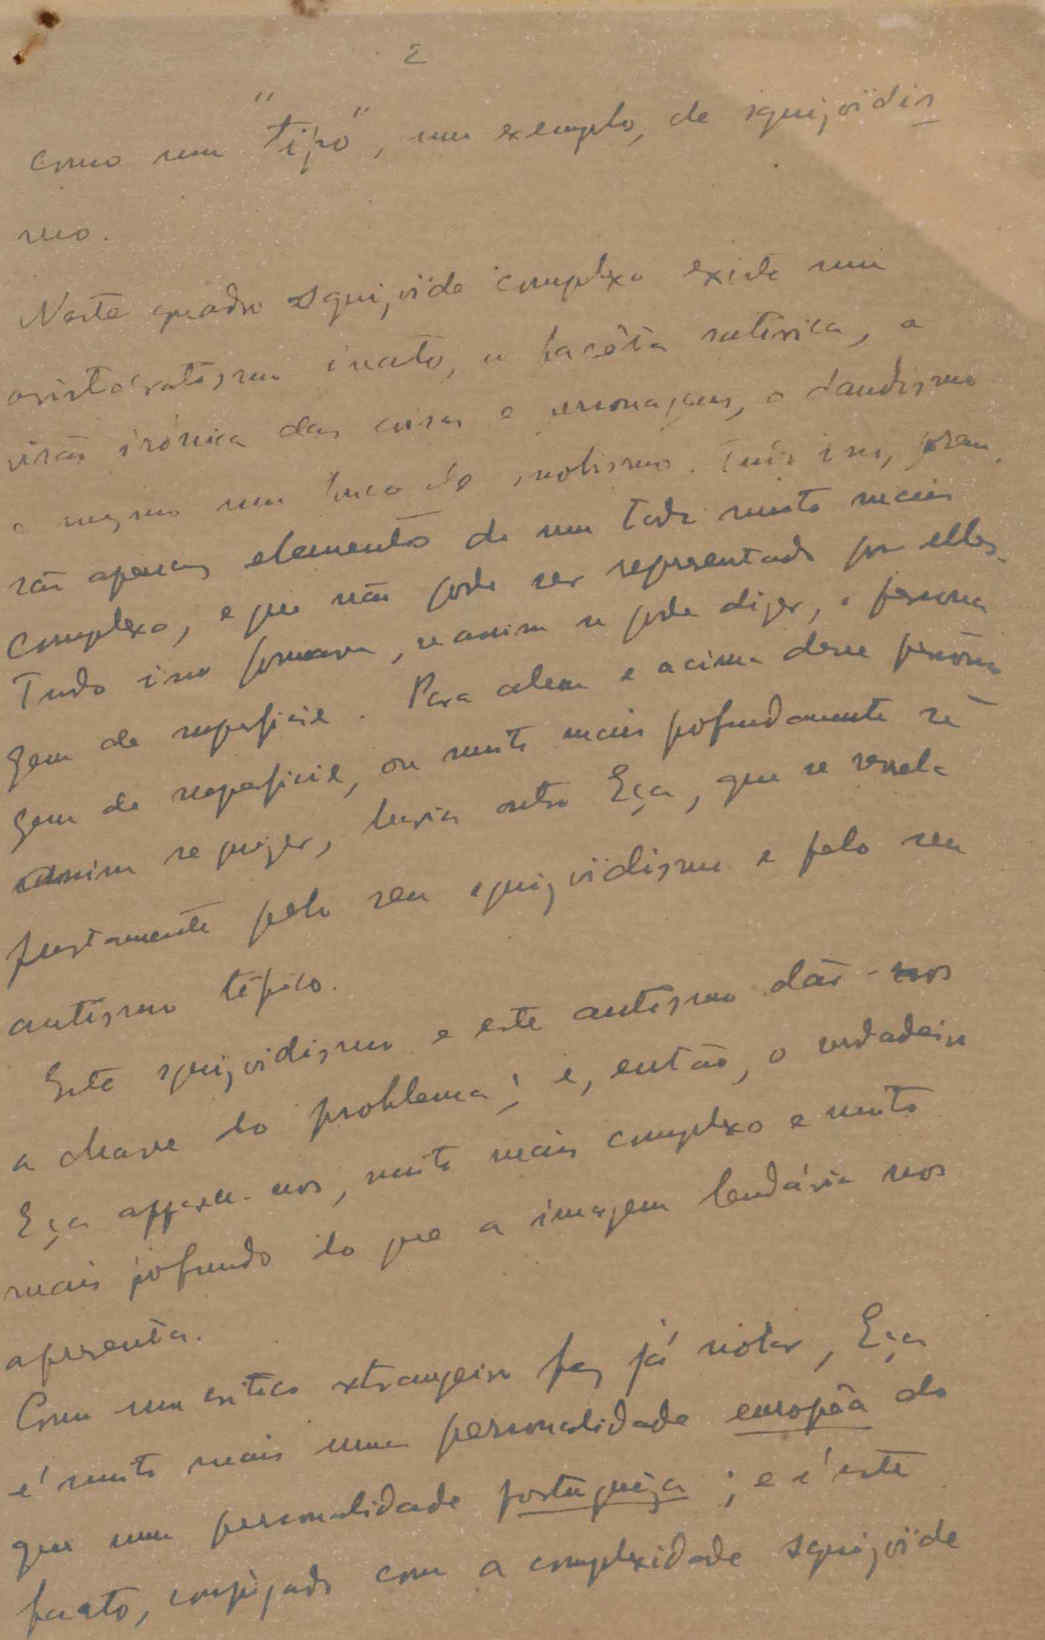 2
como um "tipo", um exemplo, de squizoïdis
mo.
Neste quadro squizoïde complexo existe um
aristocratismo inato, a facêta satirica, a
visão irónica das coisas e personagens, o dandismo
e mesmo um pouco de snobismo. Tudo isso, porem,
são apenas elementos de um todo muito mais
complexo, e que não pode ser representado por elles.
Tudo isso formava, se assim se pode dizer, o persona
gem de superficie. Para alem e acima desse persona
gem de superficie, ou muito mais profundamente se
assim se quizer, havia outro Eça, que se revela
justamente pelo seu squizoïdismo e pelo seu
autismo típico.
Este squizoidismo e este autismo dão-nos
a chave do problema; e, então, o verdadeiro
Eça apparece-nos, muito mais complexo e muito
mais profundo do que a imagem lendária nos
apresenta.
Como um critico extrangeiro fez já notar, Eça
é muito mais uma personalidade europêa do
que uma personalidade portuguêza; e é este
facto, conjugado com a complexidade squizoïde